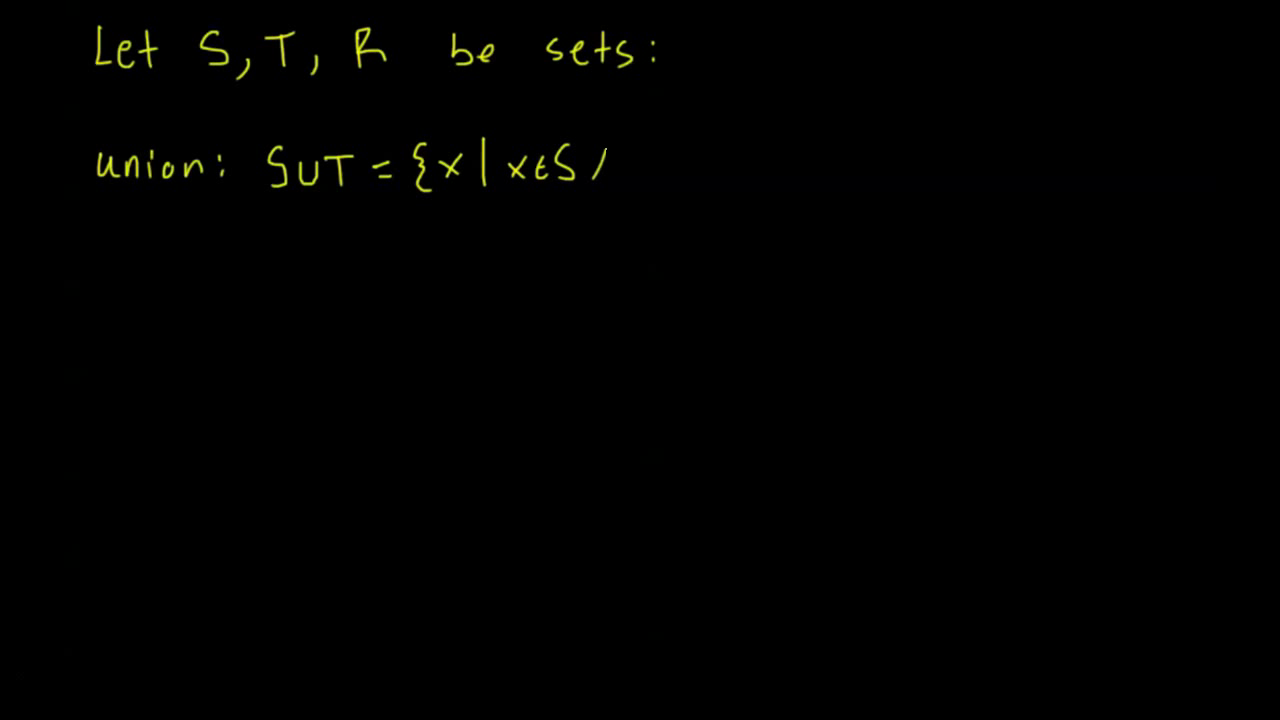 Let S, T, R be sets:
union: S∪T = {x | x∈S /